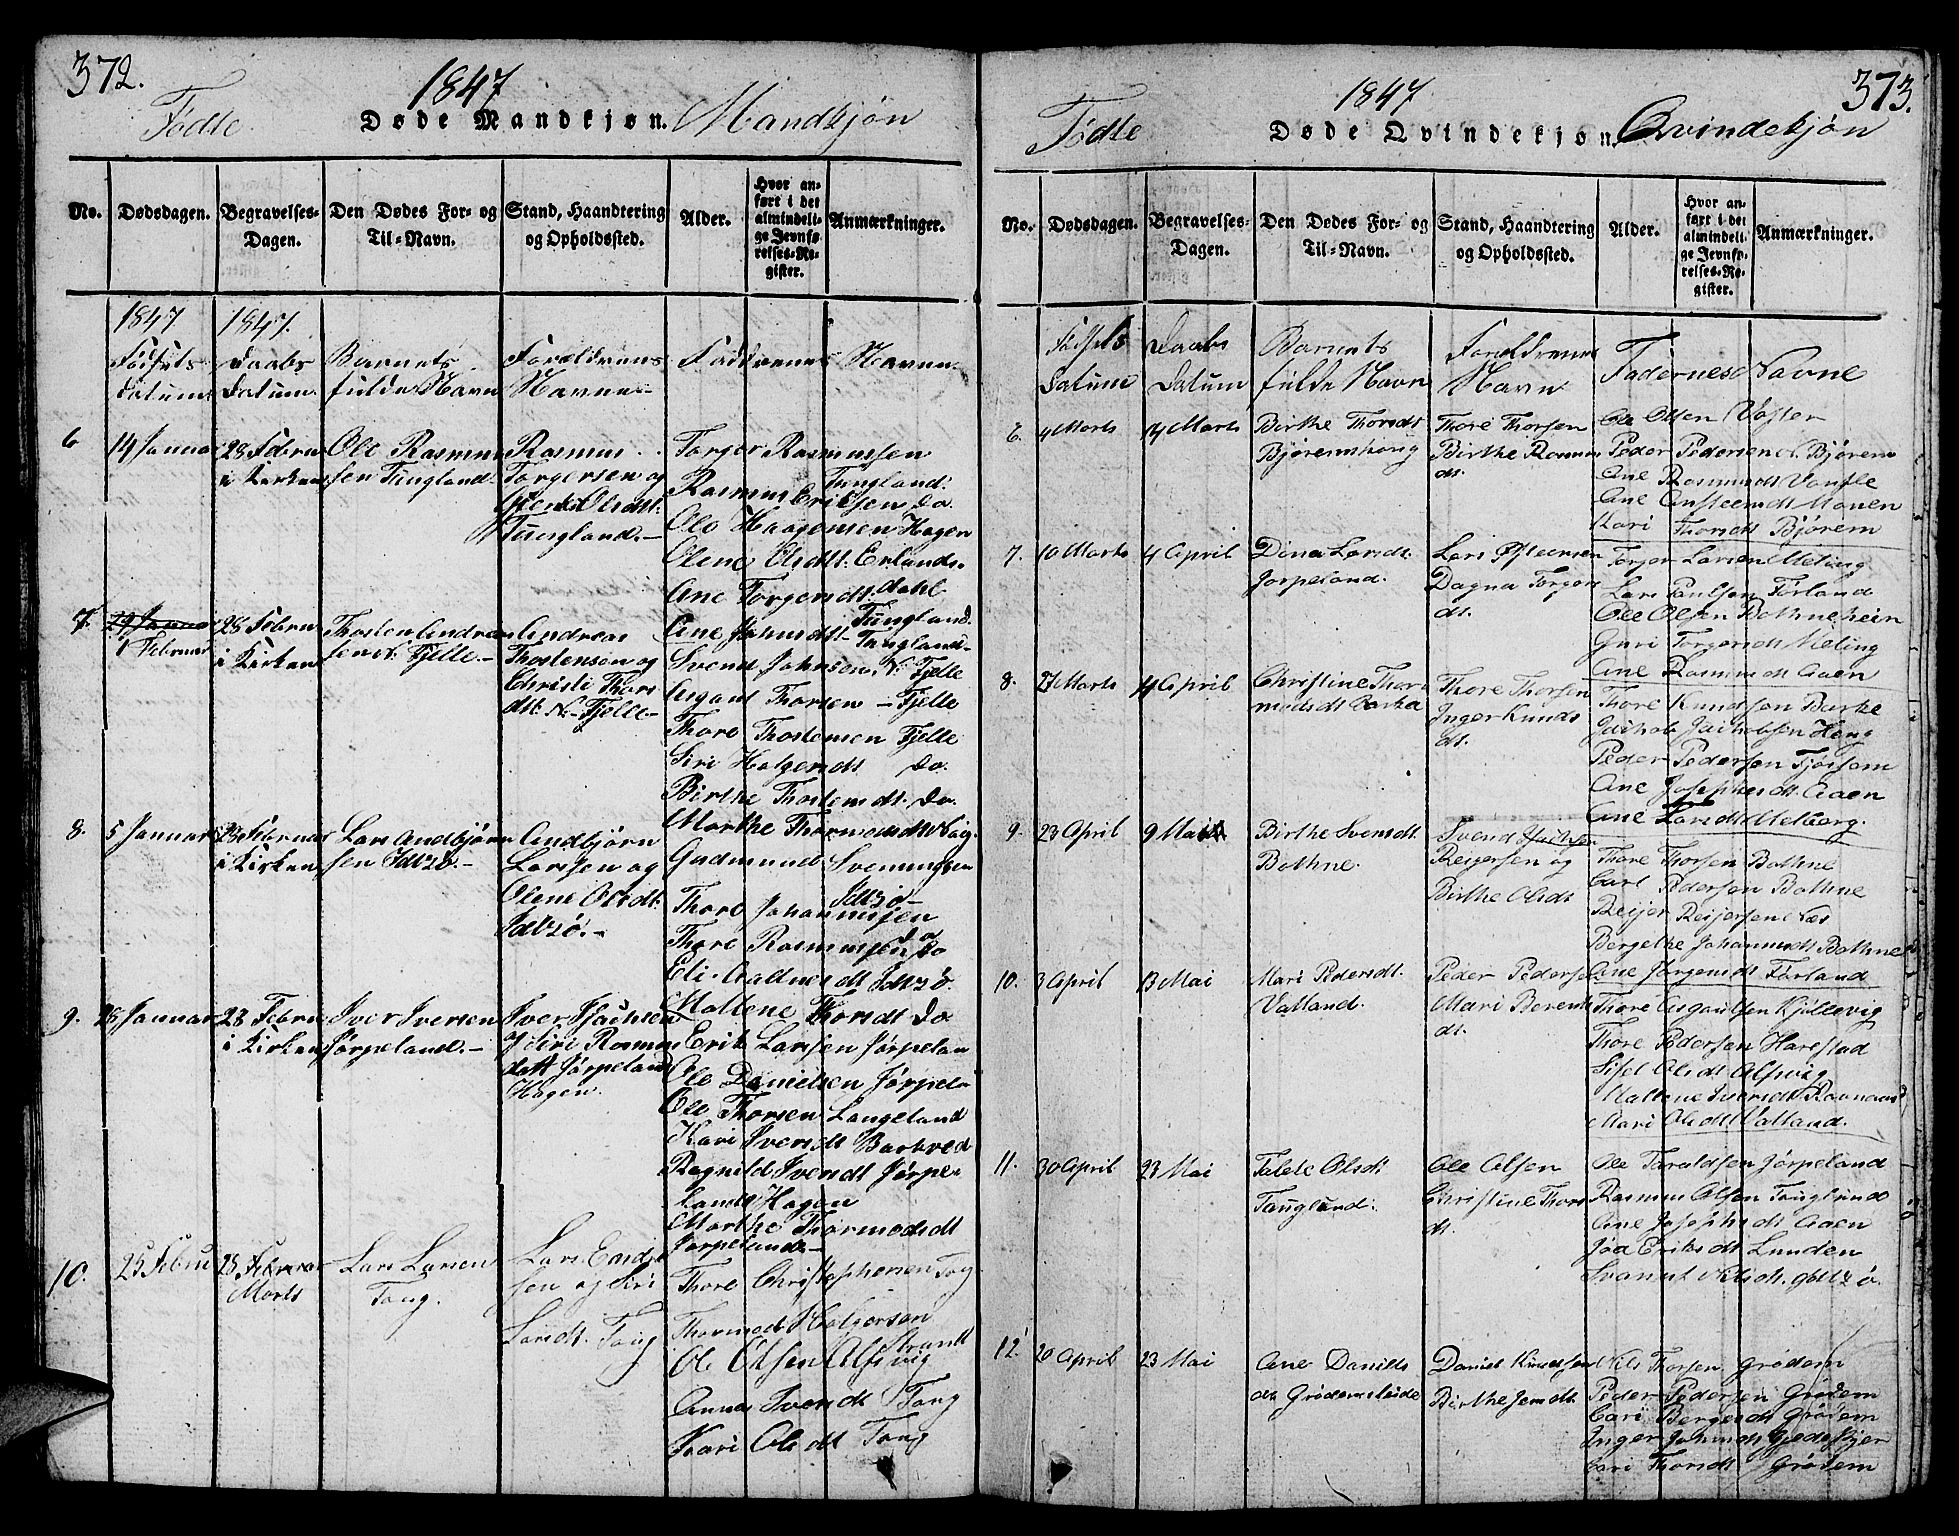 372.
1847
Fødte
Døde Mandkjøn.
Mandkjøn
No.
Dødsdagen.
Begravelses-
Dagen.
Den Dødes For- og
Til-Navn.
Stand, Haandtering
og Opholdssted.
Alder.
Hvor an-
ført i det
almindeli-
ge Jevnfø-
relses-Re-
gister.
Anmærkninger.
1847
Fødsels
datum
1847.
Daabs
datum.
Barnets
fulde Navn
Forældrenes
Navne
Faddernes Navne
6
14 Januar
28 Febru
i Kirken
Ole Rasmus
sen Tungland.
Rasmus
Torgersen og
Olsdt.
Tungland.
Torger Rasmussen
Tungland.
Rasmus Eriksen do.
Ole Haagensen Hagen
Olene Olsdt. Erlands-
dahl
Ane Torgersdt.
Tungland
7.
29 Januar
1 Februar
28 Febru
i Kirken
Thosten Andrea
sen N. Fjelle.
Andreas
Thostensen og
Christi Thors
dt. N. Fjelle
Ane Johnsdt. Tungland
Svend Johnsen N. Fjelle
Asgaut Thorsen - Fjelle
Thore Thostensen Fjelle
Siri Holgersdt do.
Birthe Thostensdt. do.
8.
5 Januar
28 Februar
i Kirken
Lars Andbjørn
sen Idtzø.
Andbjørn
Larssen og
Olene Olsdt.
Idtzø.
Marthe Thormodsdt Haig.
Gudmund Svenningsen
Idtzø
Thore Johannesen
do
Thore Rasmussen do
Eli Aadnesdt Idtzø
Maltene Thorsdt do
9.
28 Januar
28 Febru
i Kirken
Iver Iversen
Jørpeland.
Iver
og Siri Rasmus
datt Jørpeland
Hagen.
Erik Larssen Jørpelan
Ole Danielsen Jørpela
Ole Thorsen Langeland
Kari Iversdt Barkved
Ragnild Iversdt Jørpe-
lands Hagen
Marthe Thormodsdt
Jørpeland
10.
25 Febru
28 Februar
Marts
Lars Larsen
Tong.
Lars
sen og Siri
Larsdt. Tong
Thore Christophersen Tong
Thormod Holgersen
Strand
Ole Olsen Alsvig
Anna Svendsdt Tong
Kari Olsdt Tong
373.
1847
Fødte
Døde Qvindekjøn.
Qvindekjøn
No.
Dødsdagen.
Begravelses-
Dagen.
Den Dødes For- og
Til-Navn.
Stand, Haandtering
og Opholdssted.
Alder.
Hvor an-
ført i det
almindeli-
ge Jevnfø-
relses-Re-
gister.
Anmærkninger.
Fødsels
Datum
Daabs
Datum
Barnets
fulde Navn
Foreldrenes
Navn
Fadernes Navne
6.
4 Marts
14 Marts
Birthe Thorsdt
Bjøreimshoug
Thore Thorsen
Birthe Rasmus
dt.
Ole Olsen Voster
Peder Pedersen N. Bjøreim
Ane Rasmusdt
Ane
Mari Thorsdt Bjøreim
7.
10 Marts
4 April
Dina Larsdt.
Jørpeland.
Lars Østeensen
Dagna Torgers
dt.
Torger Larsen Meling
Lars Paulsen Førland
Ole Olsen Bothneheien
Guri Torgersdt Meling
Ane Rasmusdt Aaen
8.
27 Marts
4 April
Christine Thor
modsdt Barka
Thore Thorsen
Inger Knuds
dt.
Thore Knudsen Barke
Jachob Jachobsen Houg
Peder Pedersen Tjøssem
Ane Josephsdt. Aaen
Ane Larsdt Meborg.
9.
23 April
9 Mai
Birthe Svendsdt
Bothne.
Svend
Reiersen og
Birthe Olsdt
Thore Thorsen Bothne
Carl Pedersen Bothne
Reijer Reijersen Næs
Bergethe Johannesdt Bothne
Ane Jørgensdt Førland
10.
3 April
13 Mai
Mari Pedersdt.
Vatland.
Peder Pedersen
Mari Berents
dt.
Thore Asgautsen Kjøllevig
Thore Pedersen Harestad
Sisel Olsdt Alsvig
Maltene Iversdt
Mari Olsdt Vatland.
11.
30 April
23 Mai
Talete Olsdt
Tungland.
Ole Olsen
Christine Thors
dt.
Ole Taraldsen Jørpeland
Rasmus Olsen Tungland
Ane Josephsdt Aaen
Joa Eriksdt Lunden
Svanut Nilsdt. Idtzø.
12.
20 April
23 Mai
Ane Daniels
dt
Daniel Knudsen
Birthe Jensdt.
Nils Thorsen Grødem
Peder Pedersen Grødem
Cari Bergesdt Grødem
Inger Johnsdt
Cari Thorsdt Grødem